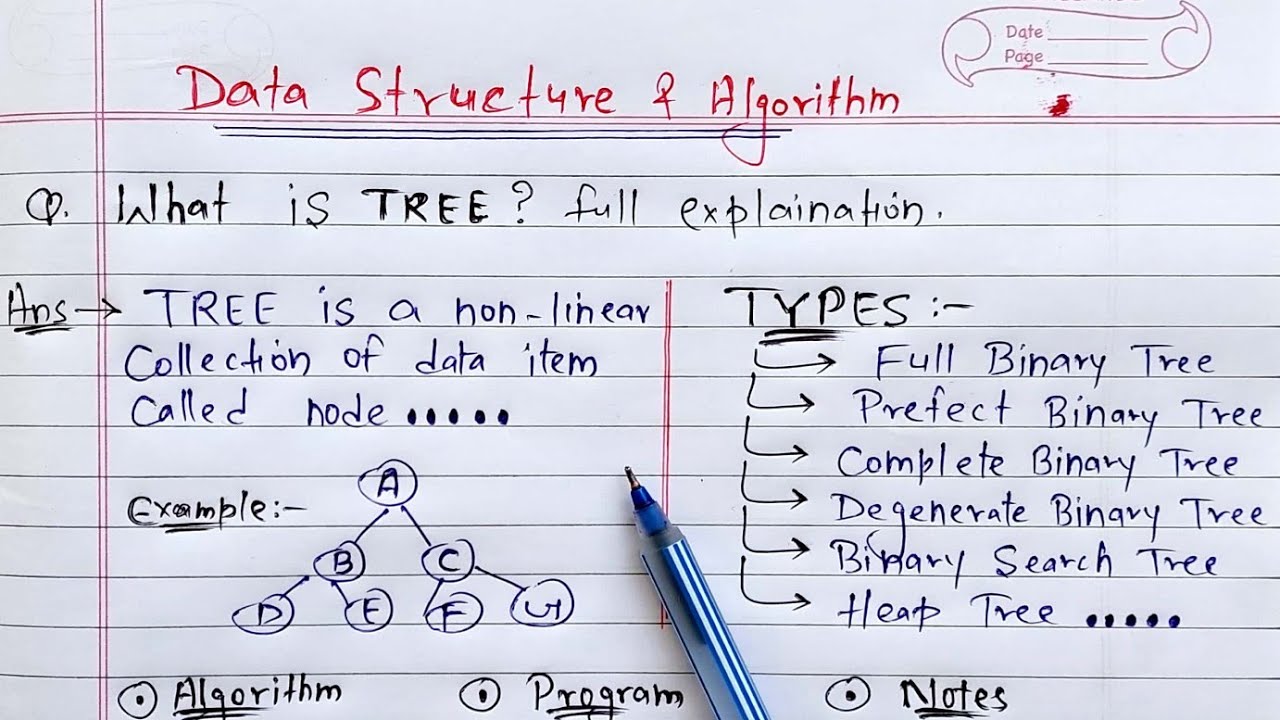 Date
Page
Data Structure & Algorithm
Q. What is TREE? full explaination.
Ans → TREE is a non-linear
Collection of data item
Called node •••••
Example:-
A
B C
D E F G
TYPES :-
→ Full Binary Tree
→ Prefect Binary Tree
→ Complete Binary Tree
→ Degenerate Binary Tree
→ Binary Search Tree
→ Heap Tree •••••
⊙ Algorithm ⊙ Program ⊙ Notes